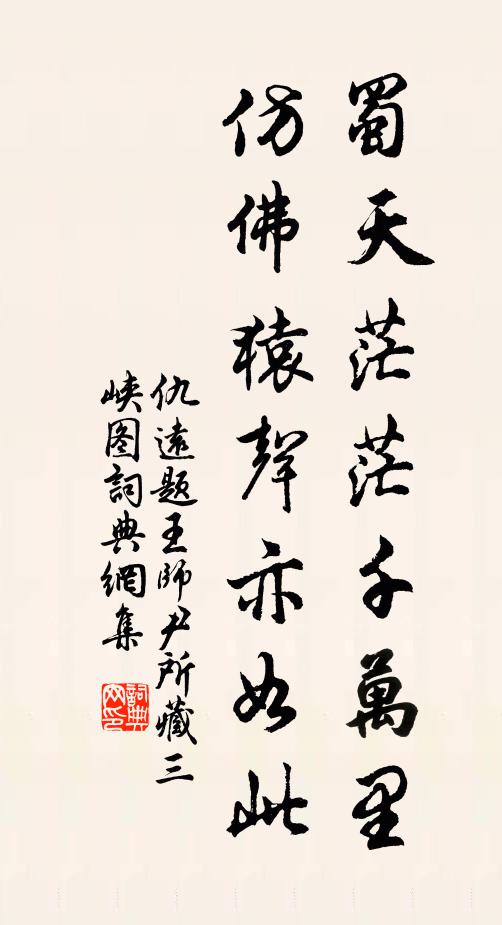 蜀天茫茫千萬里
仿佛猿聲亦如此
仇遠題王師尹所藏三
峽图詞典網集
詞典网印